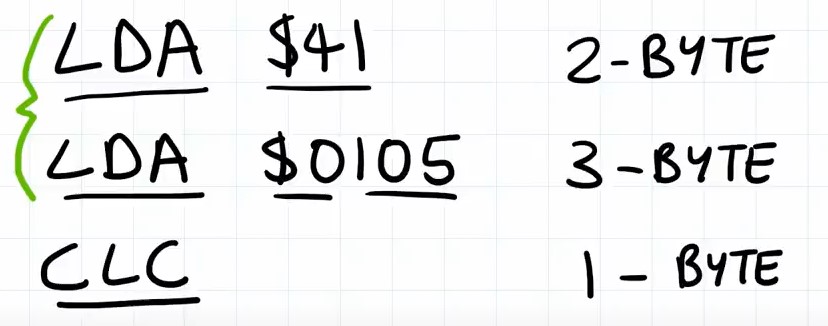 LDA $41 2-BYTE
LDA $0105 3-BYTE
CLC 1-BYTE